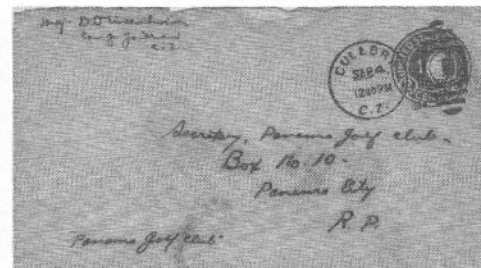 Maj. D D
C. Z.
CULEBRA
SEP 4
12 PM
C. Z.
Secretary, Panama Golf Club.
Box No. 10.
Panama City
R. P.
Panama Golf Club